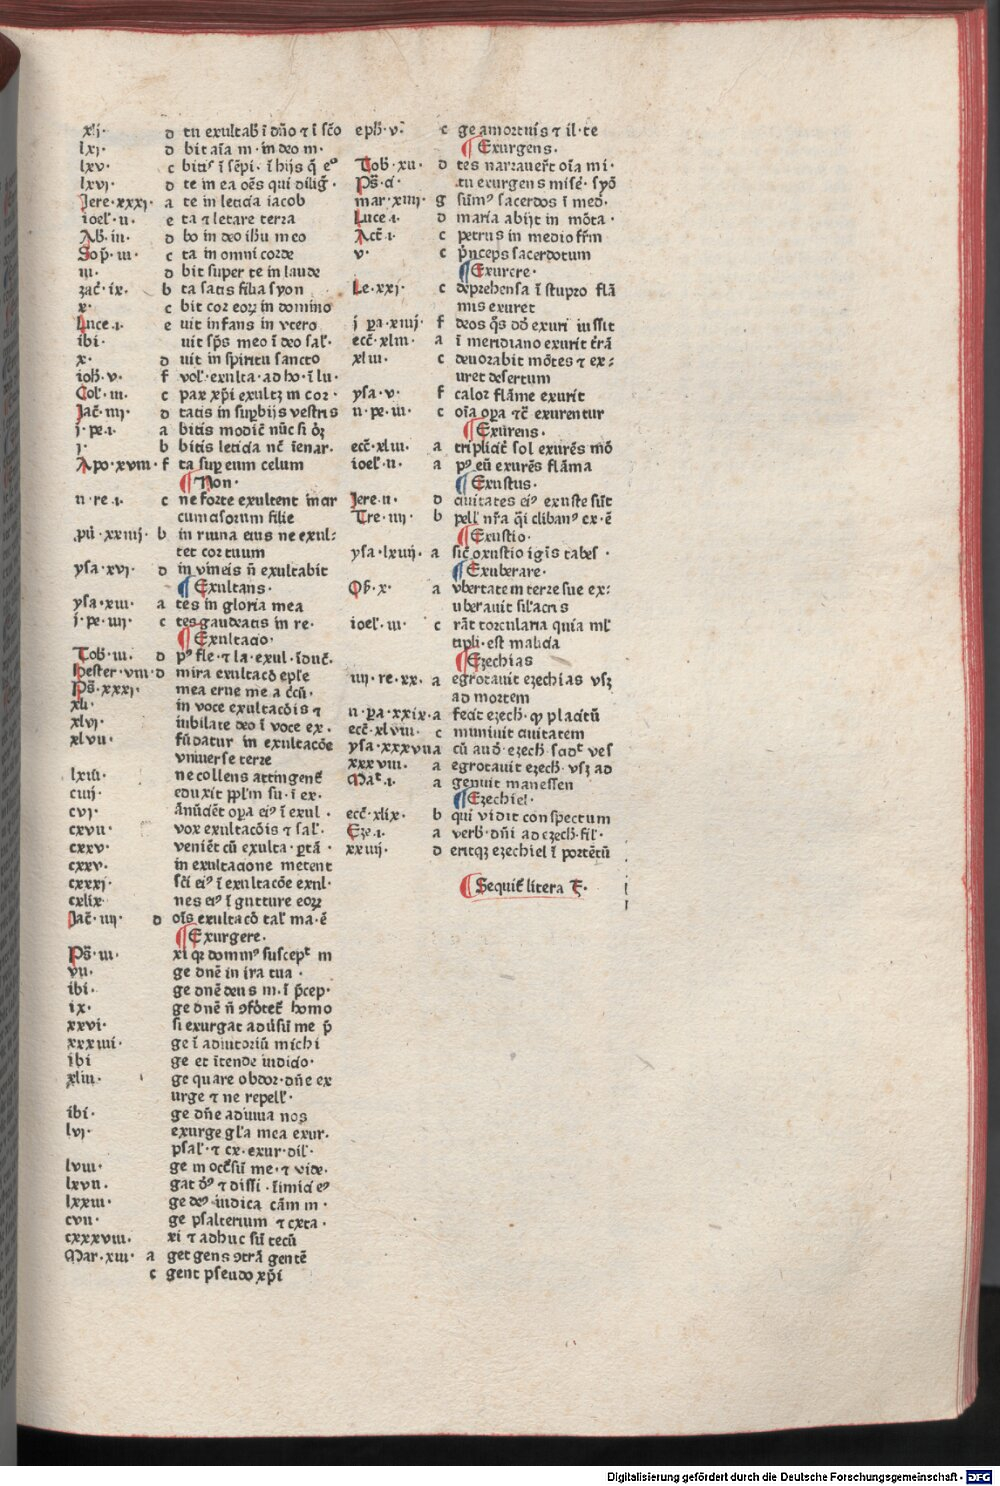 xlj· d tu exultab̄ ī dn̄o ⁊ ī sc̄o
lxj· d bit aīa m· in deo m·
lxv· c bitis ī sēpi· ī hijs q̄ e°
lxvj· d te in ea oēs qui diliḡ·
Jere·xxxj· a te in leticia iacob
ioel̄·ii· e ta ⁊ letare terra
Ab̄·iii· d bo in deo ih̄u meo
Sop̄·iii· c ta in omni corde
iii· d bit super te in laude
zac̄·ix· b ta satis filia syon
x· c bit cor eoꝝ in domino
Luce·i· e uit infans in vtero
ibi· uit sp̄s meo ī deo sal̄·
x· d uit in spiritu sancto
ioh̄·v· f vol̄·exulta·ad ho·ī lu·
Col̄·iii· c pax xp̄i exultꝫ in cor·
Jac̄·iiij· d tatis in suꝑbijs vestris
j·pe·i· a bitis modic̄ nūc si
j· b bitis leticia nc̄ īenar·
Apo·xviii· f ta suꝑ eum celum
¶ Non·
ii·re·i· c ne forte exultent in ar
cumcisorum filie
xxiiij· b in ruina eius ne exul⸗
tet cor tuum
ysa·xvi· d in vineis n̄ exultabit
¶ Exultans·
ysa·xiii· a tes in gloria mea
j·pe·iiij· c tes gaudeatis in re·
¶ Exultacio·
Tob̄·iii· d pꝰ fle·⁊ la·exul·īduc̄·
Hester·viii d mira exultacō eple
Ps̄·xxxj· mea erue me a c̄cū·
xli· in voce exultacōis ⁊
xlvj· iubilate deo ī voce ex·
xlvii· fūdatur in exultacōe
vniuerse terre
lxiiii· ne collens attingent̄
ciiij· eduxit ppl̄m su·ī ex·
cvj· ānūciēt oꝑa eiꝰ ī exul·
cxvii· vox exultacōis ⁊ sal̄·
cxxv· veniēt cū exulta·ꝑtā·
cxxv· in exultacione metent
cxxxj· sc̄i eiꝰ ī exultacōe exul·
cxlix· nes eiꝰ ī gutture eoꝝ
Jac̄·iiij· d oīs exultacō tal̄ ma·ē
¶ Exurgere·
Ps̄·iii· xi qꝛ dominꝰ suscept̄ m
vii· ge dn̄e in ira tua·
ibi· ge dn̄e deus m·ī p̄cep·
ix· ge dn̄e n̄ ꝯfōtet̄ homo
xxvi· si exurgat adūsū me p̄
xxxiiii· ge ī adiutoriū michi
ibi ge et ītende iudicio·
xliii· ge quare obdor·dn̄e ex
urge ⁊ ne repell̄·
ibi· ge dn̄e adiuua nos
lvj· exurge gl̄a mea exur·
psal̄·⁊ cx·exur·dil̄·
lviii· ge in occ̄sū me·⁊ vide·
lxvii· gat dꝰ ⁊ dissi·īimici eꝰ
lxxiii· ge deꝰ iudica cām m·
cvii· ge psalterium ⁊ cxta·
cxxxviii· xi ⁊ adhuc sū tecū
Mar·xiii· a get gens ꝯtrā gentē
c gent pseudo xp̄i
eph̄·v· c ge amortuis ⁊ il·te
¶ Exurgens·
Tob̄·xii· d tes narrauer̄t oīa mi·
Ps̄·ci· tu exurgens mise̅· syō
mar·xiiij· g sūmꝰ sacerdos ī med̄·
Luce·i· d maria abijt in mōta·
Act̄·i· c petrus in medio fr̄m
v· c p̄nceps sacerdotum
¶ Exurere·
Le·xxj· c deprehensa ī stupro flā
mis exuret
j ꝑa·xiiij· f deos q̄s dd̄ exuri iussit
ecc̄·xliii· a ī meridiano exurit t̄rā
xliii· c deuorabit mōtes ⁊ ex⸗
uret desertum
ysa·v· f calor flāme exurit
ii·pe·iii· c oīa oꝑa ⁊c̄ exurentur
¶ Exurens·
ecc̄·xliii· a triplicit̄ sol exurēs mō
ioel̄·ii· a pꝰ eū exurēs flāma
¶ Exustus·
Jere·ii· d ciuitates eiꝰ exuste sūt
Tre·iiij· b pell̄ nr̄a q̄i clibanꝰ ex·ē
¶ Exustio·
ysa·lxiiij· a sic̄ exustio igīs tabes̄·
¶ Exuberare·
Ob̄·x· a vbertatem terre sue ex⸗
uberauit sil̄acris
ioel̄·iii· c rāt torcularia quia ml̄
tipli·est malicia
¶ Ezechias
iiij·re·xx· a egrotauit ezechias vsꝫ
ad mortem
ii·ꝑa·xxix·a fecit ezech̄·ꝙ placitū
ecc̄·xlviii· c muniuit ciuitatem
ysa·xxxvii a cū aud̄·ezech̄·scid̄t ves̄
xxxviii· a egrotauit ezech̄·vsꝫ ad
Mat̄·i· a genuit manessen
¶ Ezechiel·
ecc̄·xlix· b qui vidit conspectum
Eze·i· a verb̄·dn̄i ad ezech̄·fil̄·
xxiiij· d eritqꝫ ezechiel ī portētū
¶ Sequit̄ litera F·
Digitalisierung gefördert durch die Deutsche Forschungsgemeinschaft · DFG